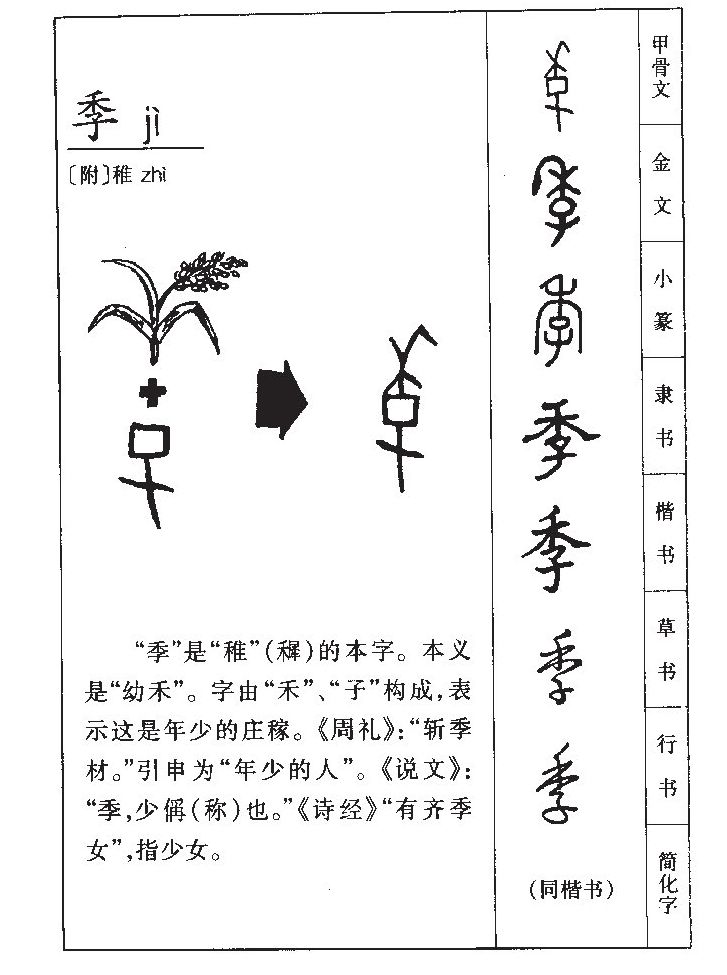 季 jì
〔附〕稚 zhì
“季”是“稚”(穉)的本字。本义
是“幼禾”。字由“禾”、“子”构成,表
示这是年少的庄稼。《周礼》:“斩季
材。”引申为“年少的人”。《说文》:
“季,少偁(称)也。”《诗经》“有齐季
女”,指少女。
季
季
季
季
季
季
季
(同楷书)
甲骨文
金文
小篆
隶书
楷书
草书
行书
简化字